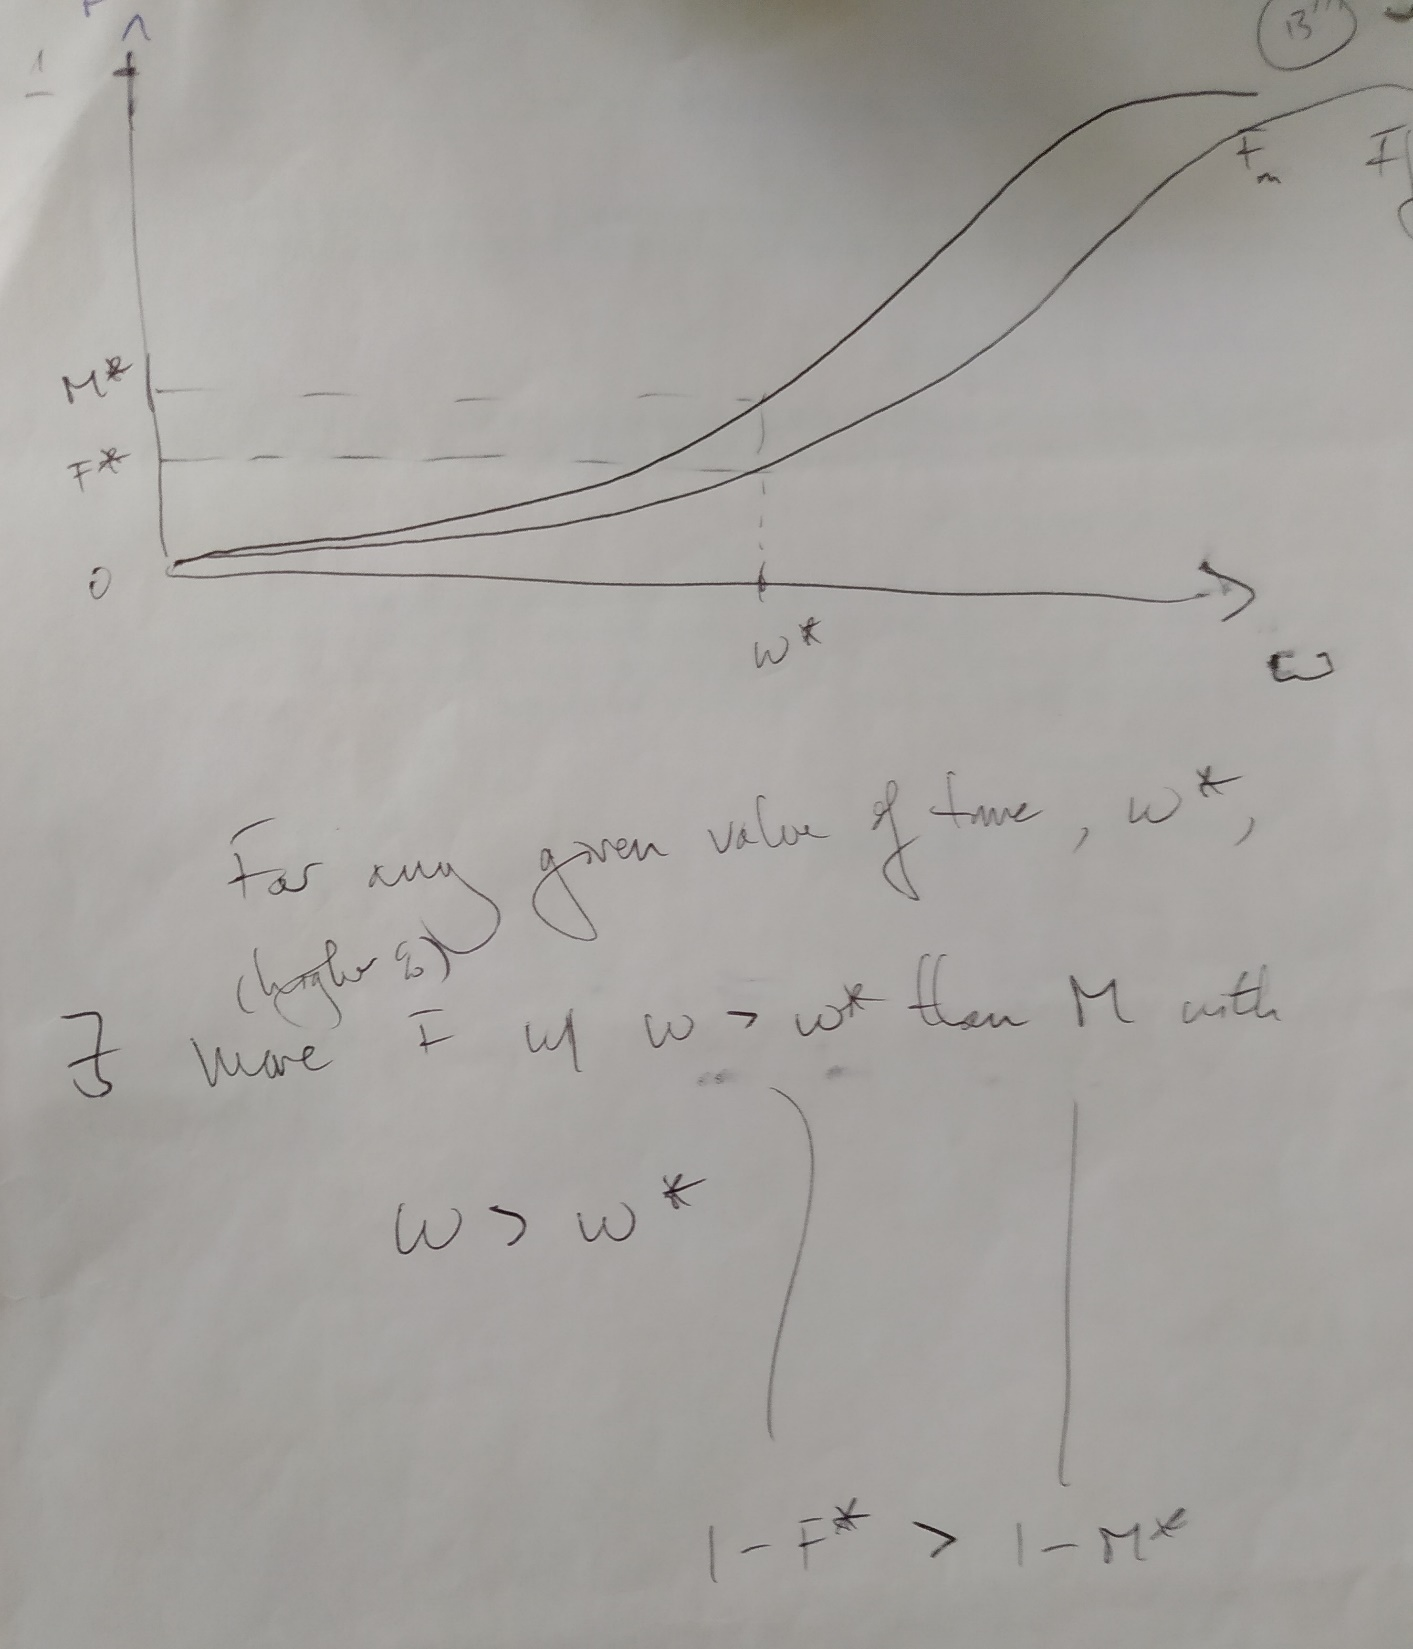 1
M*
F*
0
w*
w
F_m
For any given value of time, w*,
(higher %)
∃ more F w/ w > w* than M with
w > w*
1 - F* > 1 - M*